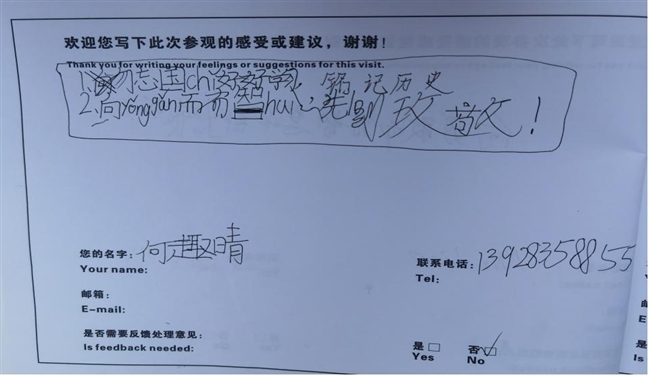 欢迎您写下此次参观的感受或建议，谢谢！
Thank you for writing your feelings or suggestions for this visit.
1.勿忘国chi好好学习，铭记历史
2.向yǒnggǎn而有智hui的先lèi致敬！
您的名字：何趣晴
Your name:
联系电话：13928358855
Tel:
邮箱：
E-mail:
是否需要反馈处理意见：
Is feedback needed:
是□ 否☑
Yes No